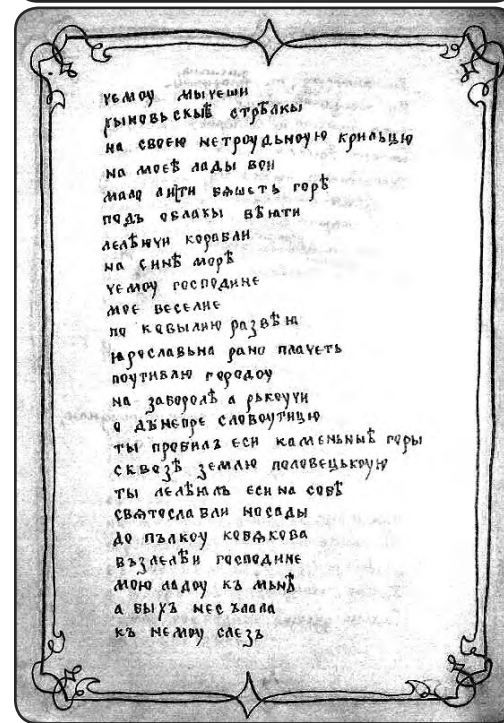 чемоу мычеши
хыновьскыѣ стрѣлкы
на своею нетроудьноую крильцю
на моеѣ лады вои
мало ли ти бѧшеть горѣ
подъ облакы вѣꙗти
лелѣючи корабли
на синѣ морѣ
чемоу господине
мое веселие
по ковылию развѣꙗ
ꙗрославьна рано плачеть
поутивлю городоу
на заборолѣ а рькоучи
о дънепре словоутицю
ты пробилъ еси каменьныѣ горы
сквозѣ землю половецькоую
ты лелѣꙗлъ еси на собѣ
свѧтославли носады
до пълкоу кобѧкова
възлелѣи господине
мою ладоу къ мьнѣ
а быхъ не сълала
къ немоу слезъ